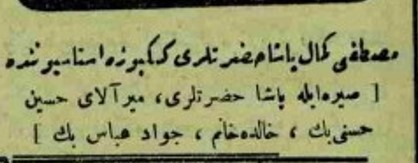 مصطفى كمال پاشا حضرتلرى ككبوزه استاسيوننده
[ صيره ايله پاشا حضرتلرى ، ميرآلاى حسين
حسنى بك ، خالده خانم ، جواد عباس بك ]